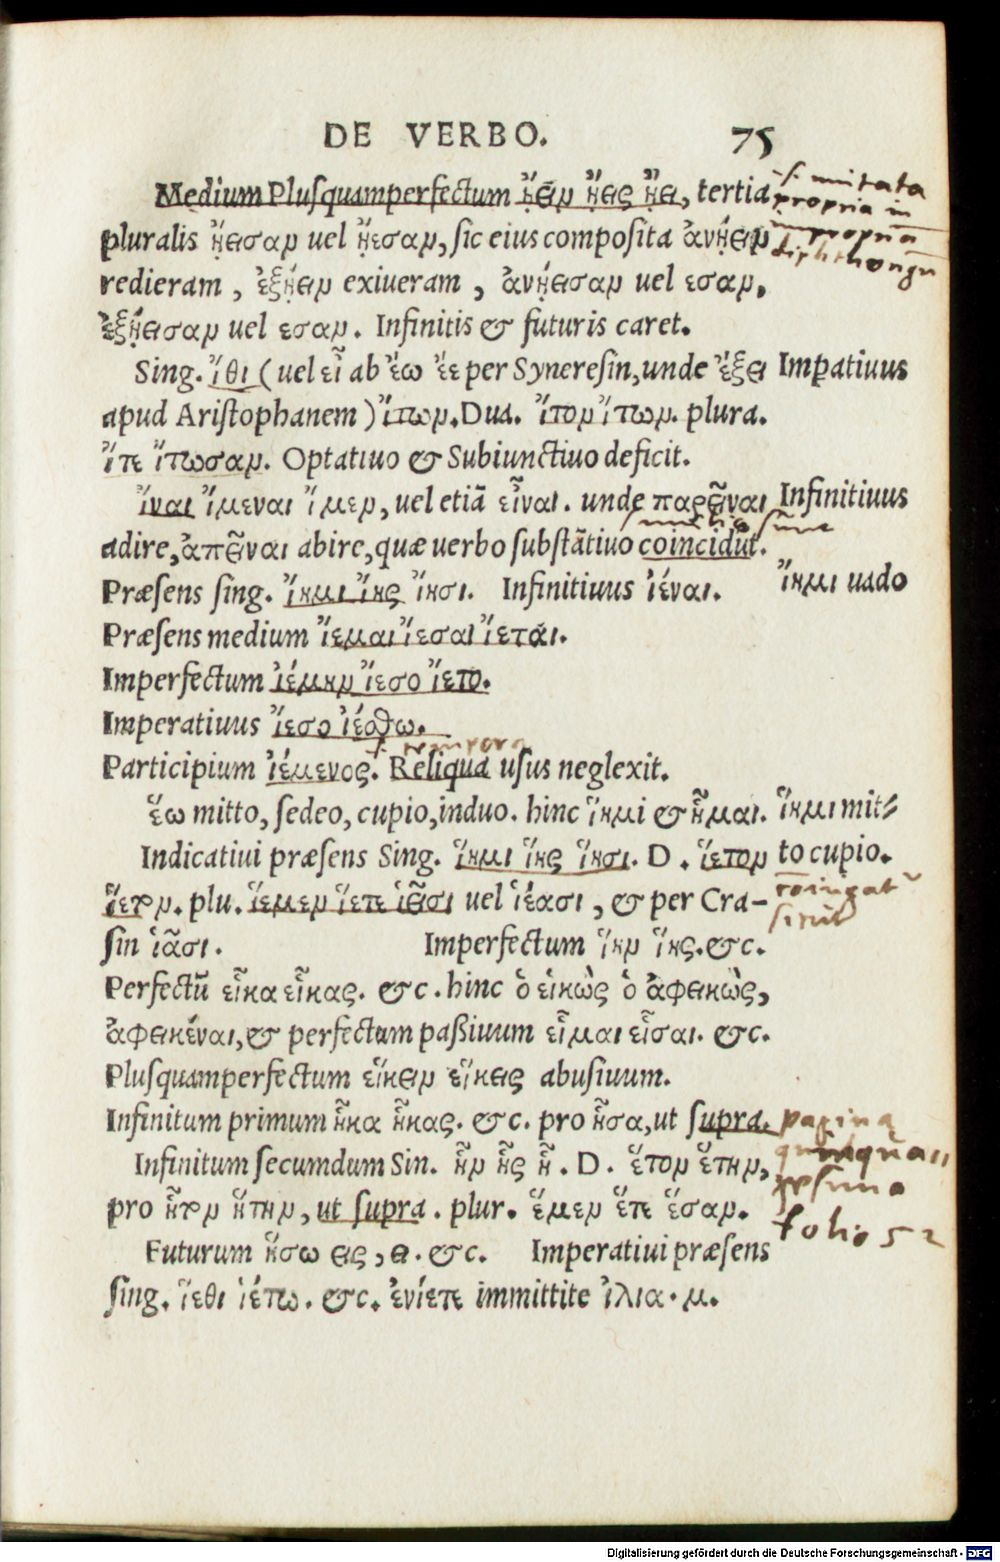 DE VERBO. 75
Medium Pluſquamperfectum ᾔειν ᾔεις ᾔει, tertia
pluralis ᾔεισαν uel ᾔεσαν, ſic eius compoſita ἀνῄειν
redieram, ἐξῄειν exiueram, ἀνῄεισαν uel εσαν,
ἐξῄεισαν uel εσαν. Infinitis & futuris caret.
Sing. ἴθι (uel εἶ ab ἔω ἔε per Syneresin, unde ἔξει Impatiuus
apud Ariſtophanem) ἴτω. Dua. ἴτον ἴτων. plura.
ἴτε ἴτωσαν. Optatiuo & Subiunctiuo deficit.
ἴναι ἴμεναι ἴμεν, uel etiā εἶναι. unde παρεῖναι Infinitiuus
adire, ἀπεῖναι abire, quæ uerbo ſubſtātiuo coincidūt.
Præſens ſing. ἵημι ἵης ἵησι. Infinitiuus ἰέναι. ἵημι uado
Præſens medium ἵεμαι ἵεσαι ἵεται.
Imperfectum ἱέμην ἵεσο ἵετο.
Imperatiuus ἵεσο ἱέσθω.
tempora
Participium ἱέμενος. Reliqua uſus neglexit.
ἕω mitto, ſedeo, cupio, induo. hinc ἵημι & ἧμαι. ἵημι mit⸗
Indicatiui præſens Sing. ἵημι ἵης ἵησι. D. ἵετον to cupio.
ἵετον. plu. ἵεμεν ἵετε ἱεῖσι uel ἱέασι, & per Cra-
ſin ἱᾶσι. Imperfectum ἵην ἵης. &c.
Perfectū εἷκα εἷκας. &c. hinc ὁ εἱκὼς ὁ ἀφεικὼς,
ἀφεικέναι, & perfectum paßiuum εἷμαι εἷσαι. &c.
Pluſquamperfectum εἵκειν εἵκεις abuſiuum.
Infinitum primum ἧκα ἧκας. &c. pro ἧσα, ut ſupra. pagina
Infinitum ſecumdum Sin. ἧν ἧς ἧ. D. ἕτον ἕτην,
pro ἧτον ἥτην, ut ſupra. plur. ἕμεν ἕτε ἕσαν.
folio 52
Futurum ἥσω εις, ει. &c. Imperatiui præſens
ſing. ἵεθι ἱέτω. &c. ἐνίετε immittite ἰλια. μ.
Digitalisierung gefördert durch die Deutsche Forschungsgemeinschaft - DFG